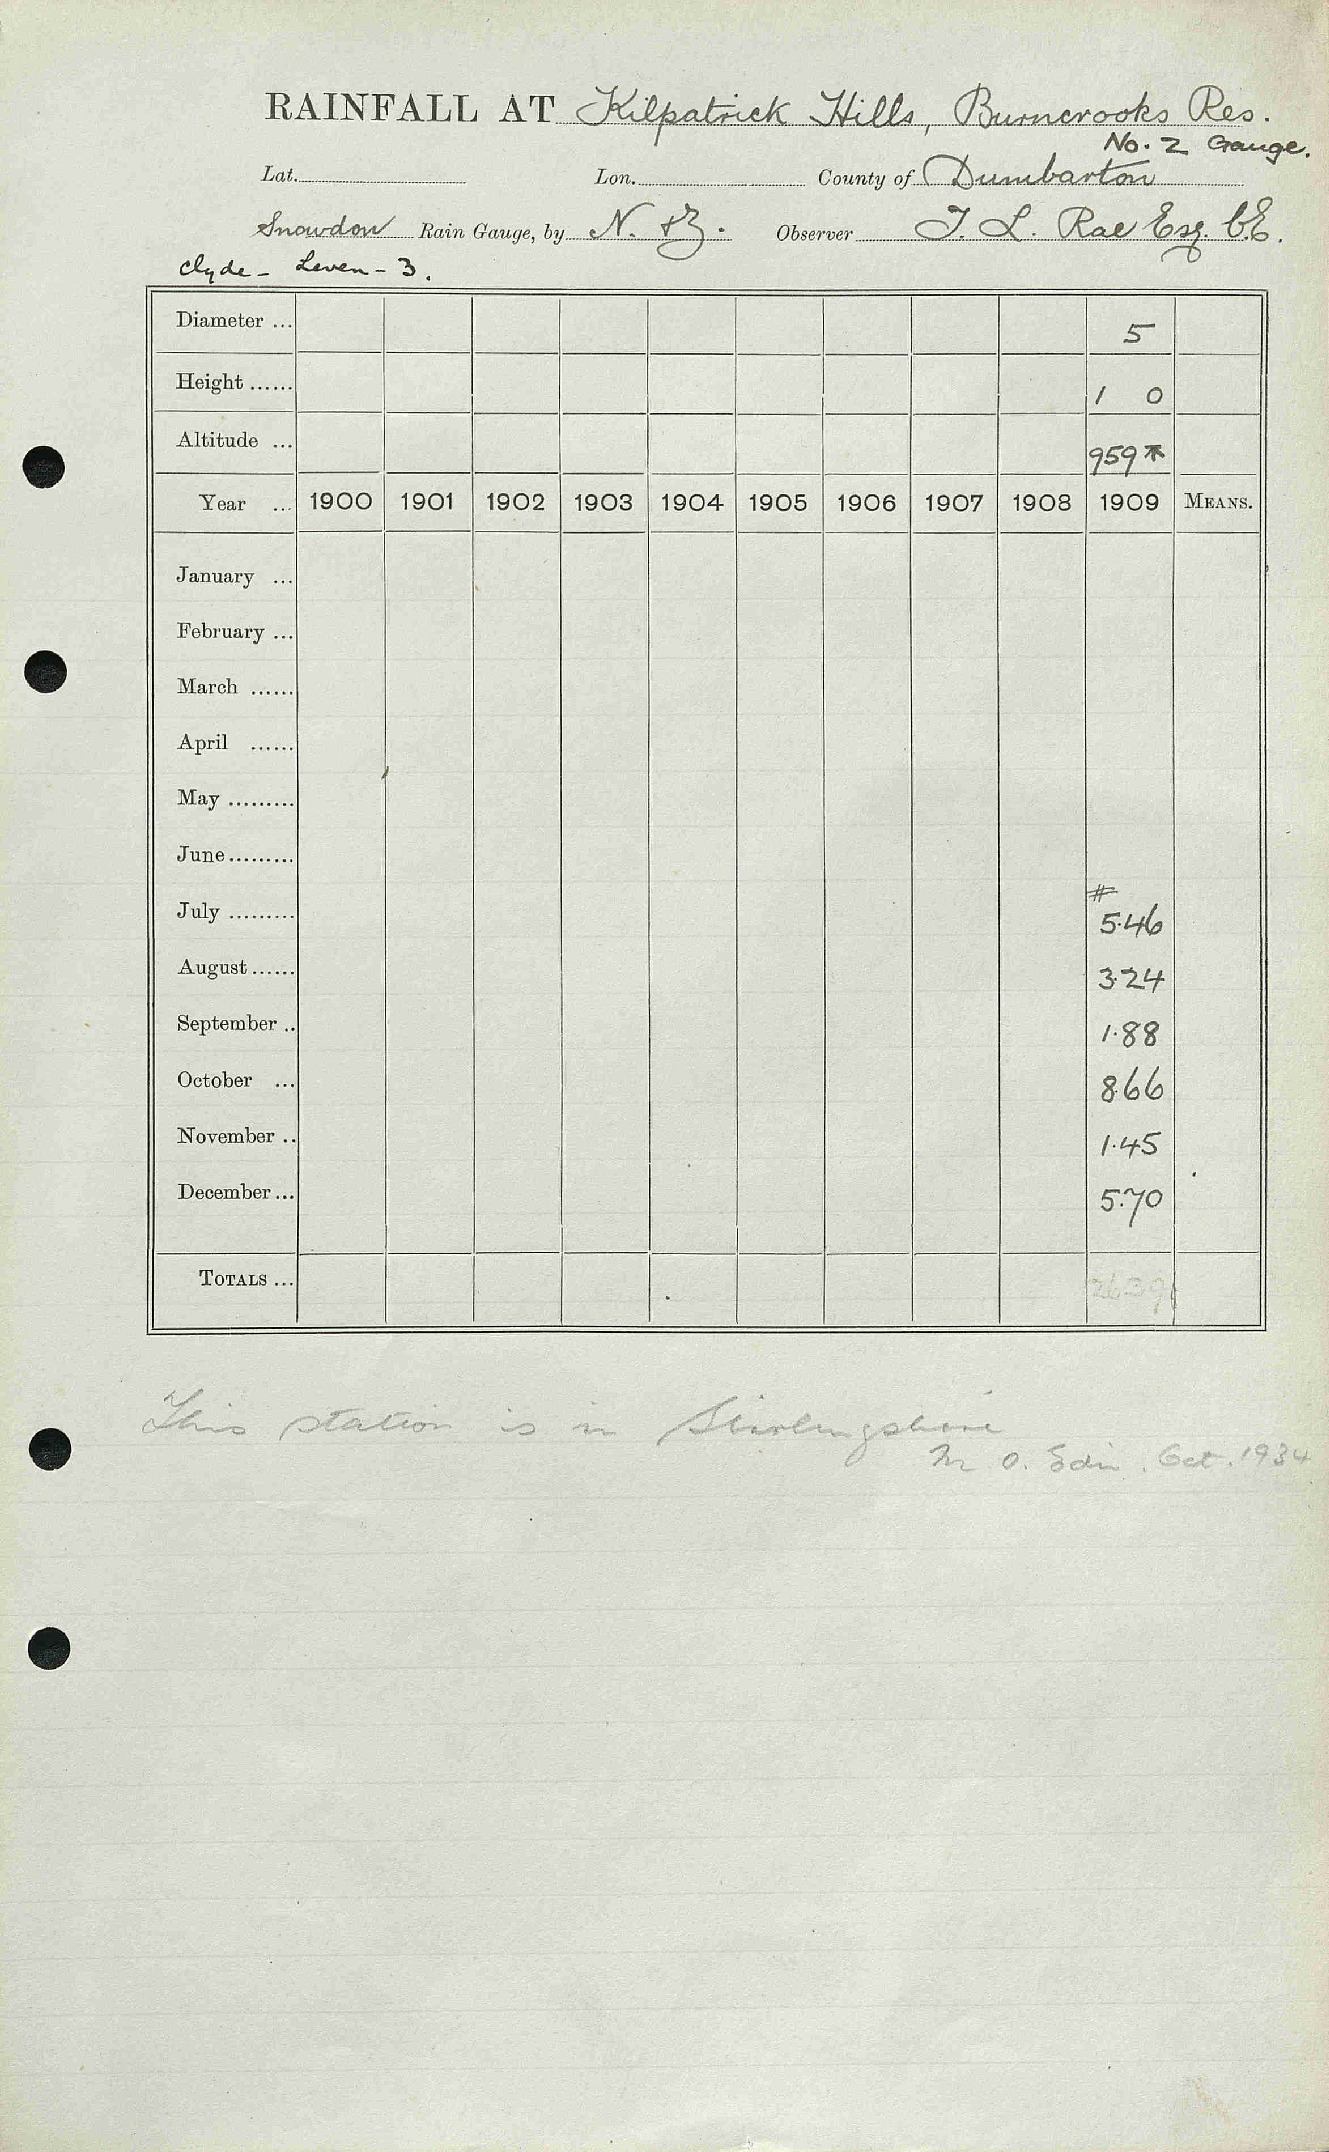 RAINFALL AT Kilpatrick Hills, Burncrooks Res.
No. 2 Gauge.
Lat. Lon. County of Dumbarton
Snowdon Rain Gauge, by N. & Z. Observer J. L. Rae Esq. C.E.
Clyde - Leven - 3.
Diameter ... 5
Height ...... 1 0
Altitude ... 959
Year ... 1900 1901 1902 1903 1904 1905 1906 1907 1908 1909 MEANS.
January ...
February ...
March ......
April ......
May .........
June.........
#
July ......... 5.46
August...... 3.24
September .. 1.88
October ... 8.66
November .. 1.45
December... 5.70
TOTALS ... 26.39
This station is in Stirlingshire
M. O. Edin. Oct. 1934